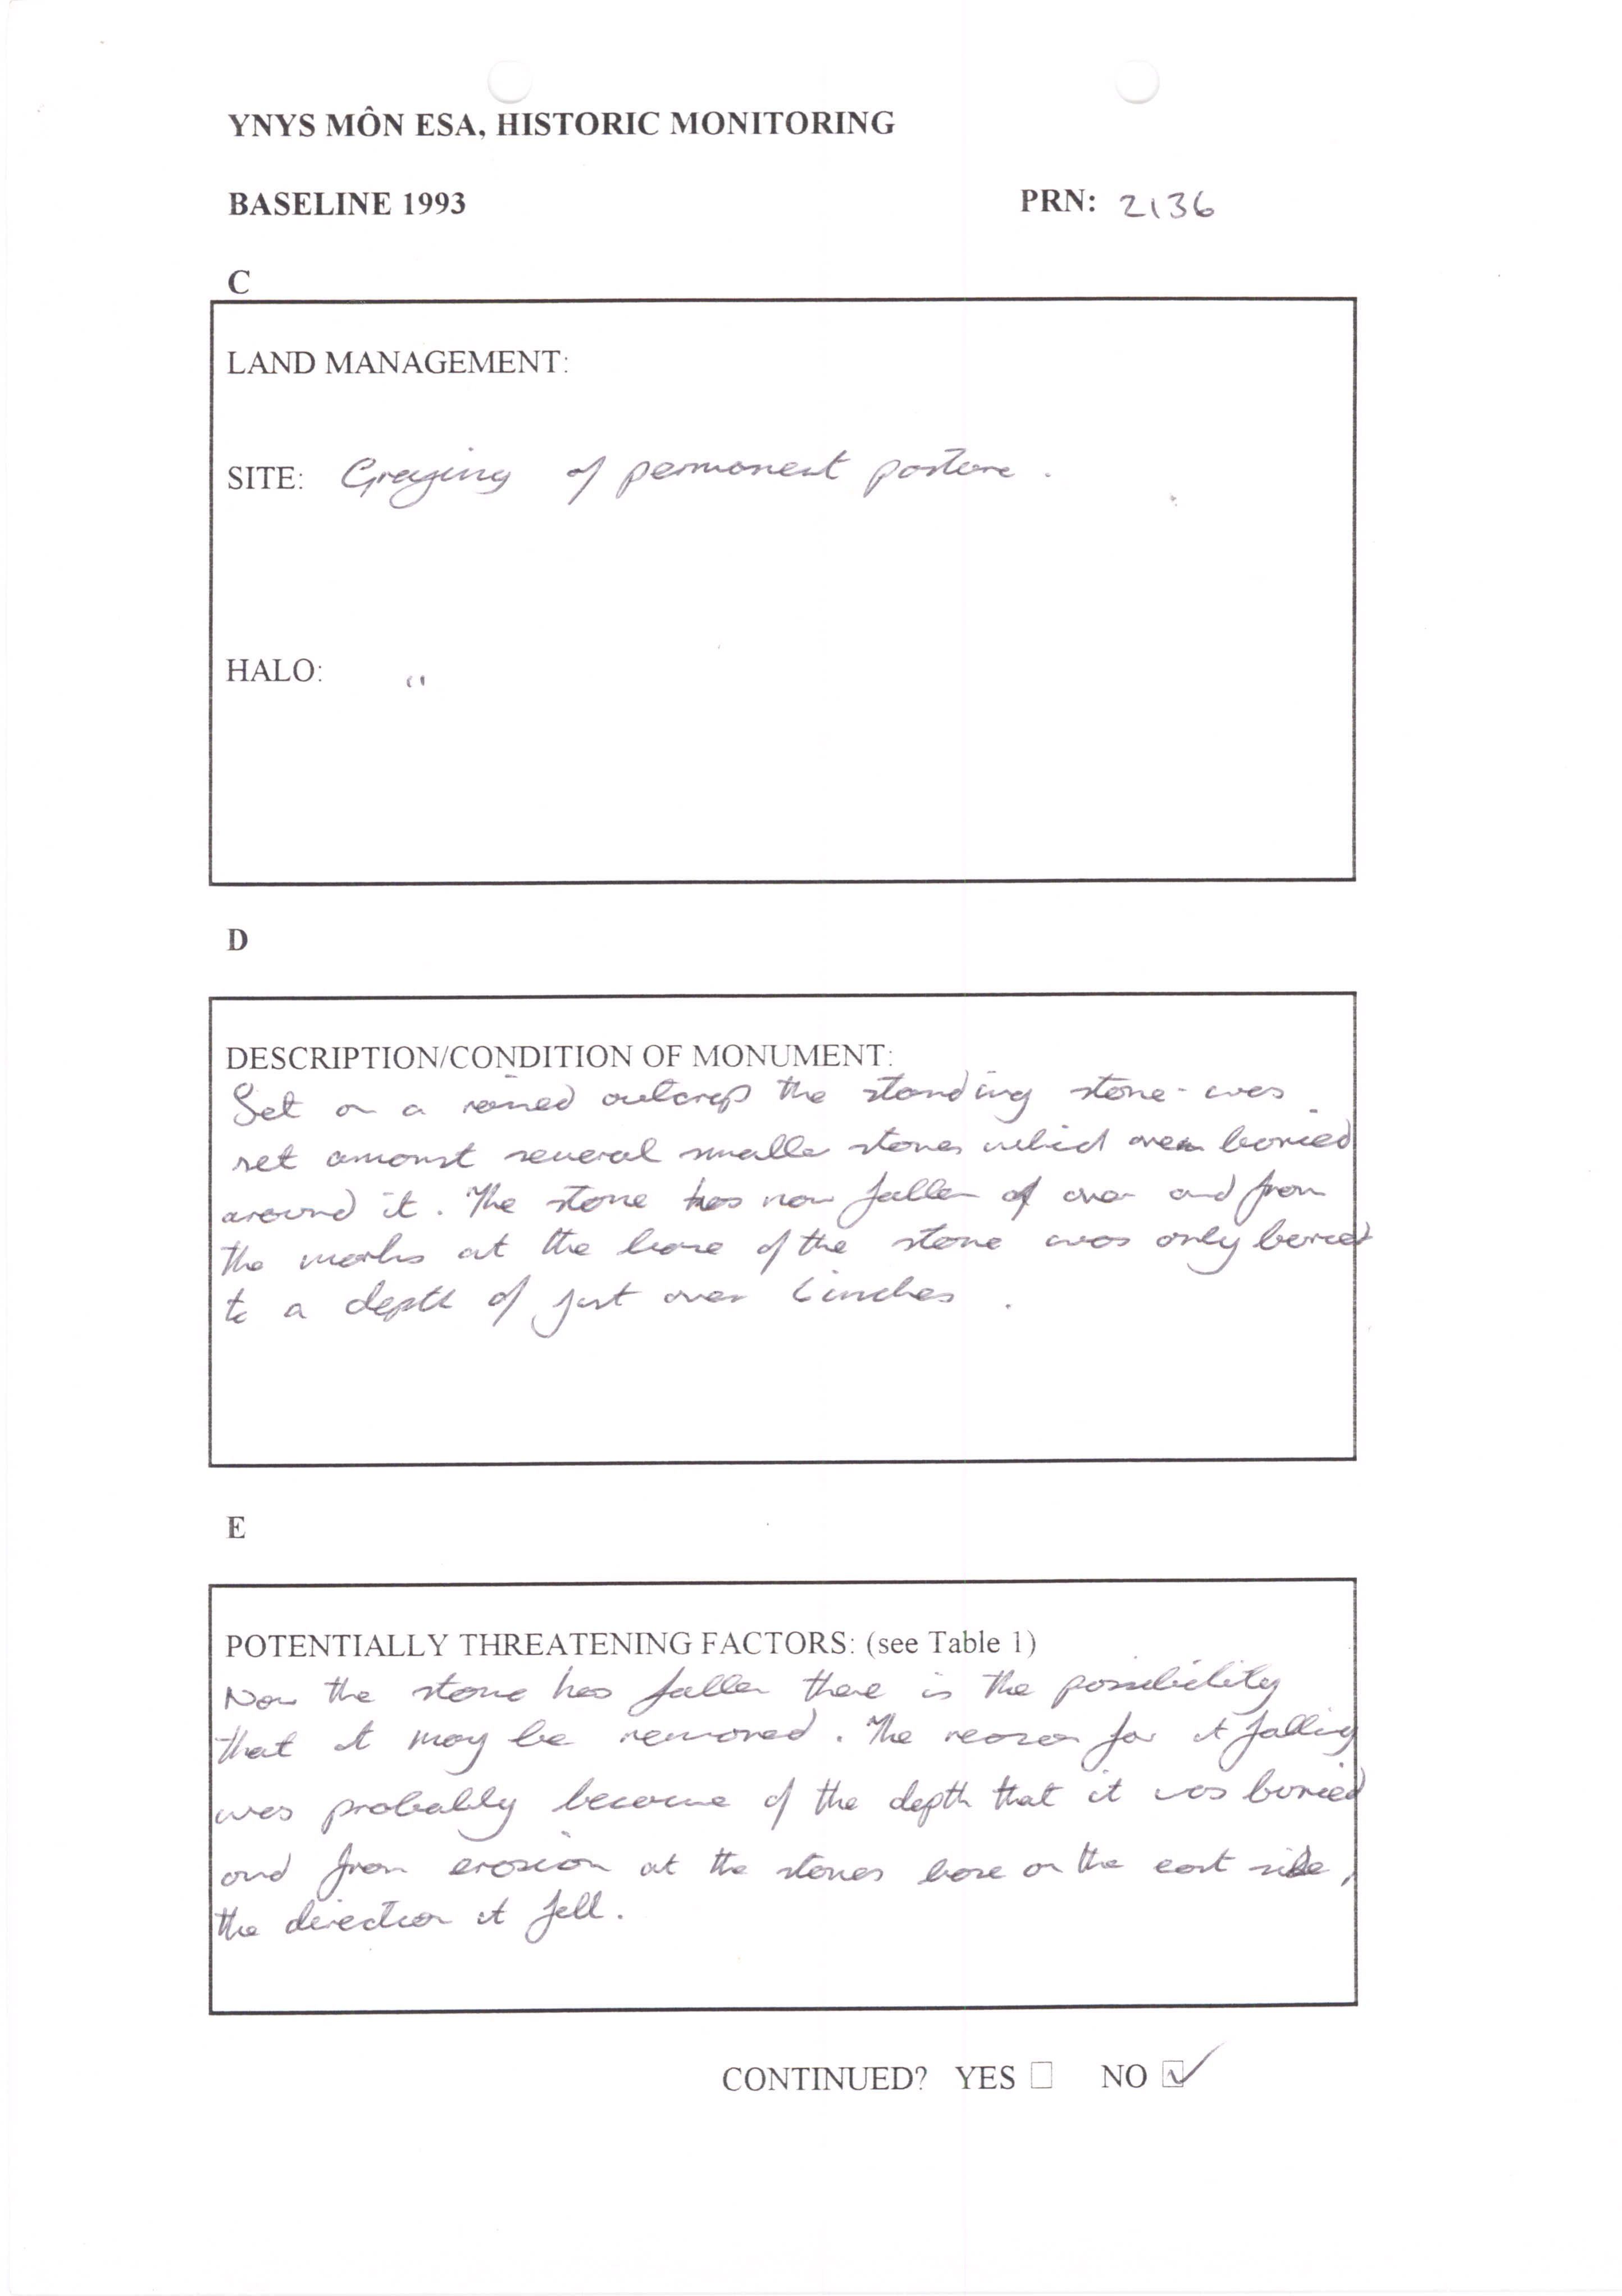 YNYS MÔN ESA, HISTORIC MONITORING
BASELINE 1993 PRN: 2136
C
LAND MANAGEMENT:
SITE: Grazing of permanent pasture.
HALO: "
D
DESCRIPTION/CONDITION OF MONUMENT:
Set on a raised outcrop the standing stone was
set amonst several smaller stones which were buried
around it. The stone has now fallen over and from
the marks at the base of the stone was only buried
to a depth of just over inches.
E
POTENTIALLY THREATENING FACTORS: (see Table 1)
Now the stone has fallen there is the possibility
that it may be removed. The reason for it falling
was probably because of the depth that it was buried
and from erosion at the stones base on the east side,
the direction it fell.
CONTINUED? YES ☐ NO ☑